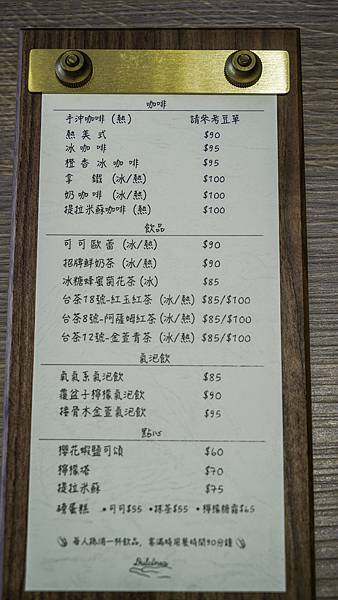 咖啡
手沖咖啡 (熱) 請參考豆單
熱美式 $90
冰咖啡 $95
橙香冰咖啡 $95
拿鐵 (冰/熱) $100
奶咖啡 (冰/熱) $100
提拉米蘇咖啡 (熱) $100
飲品
可可歐蕾 (冰/熱) $90
招牌鮮奶茶 (冰/熱) $90
冰糖蜂蜜菊花茶 (冰) $85
台茶18號-紅玉紅茶 (冰/熱) $85/$100
台茶8號-阿薩姆紅茶 (冰/熱) $85/$100
台茶12號-金萱青茶 (冰/熱) $85/$100
氣泡飲
氣氣系氣泡飲 $85
覆盆子檸檬氣泡飲 $90
接骨木金萱氣泡飲 $95
點心
櫻花蝦鹽可頌 $60
檸檬塔 $70
提拉米蘇 $75
磅蛋糕 •可可$55 •抹茶$55 •檸檬糖霜$65
每人低消一杯飲品, 客滿時用餐時間90分鐘